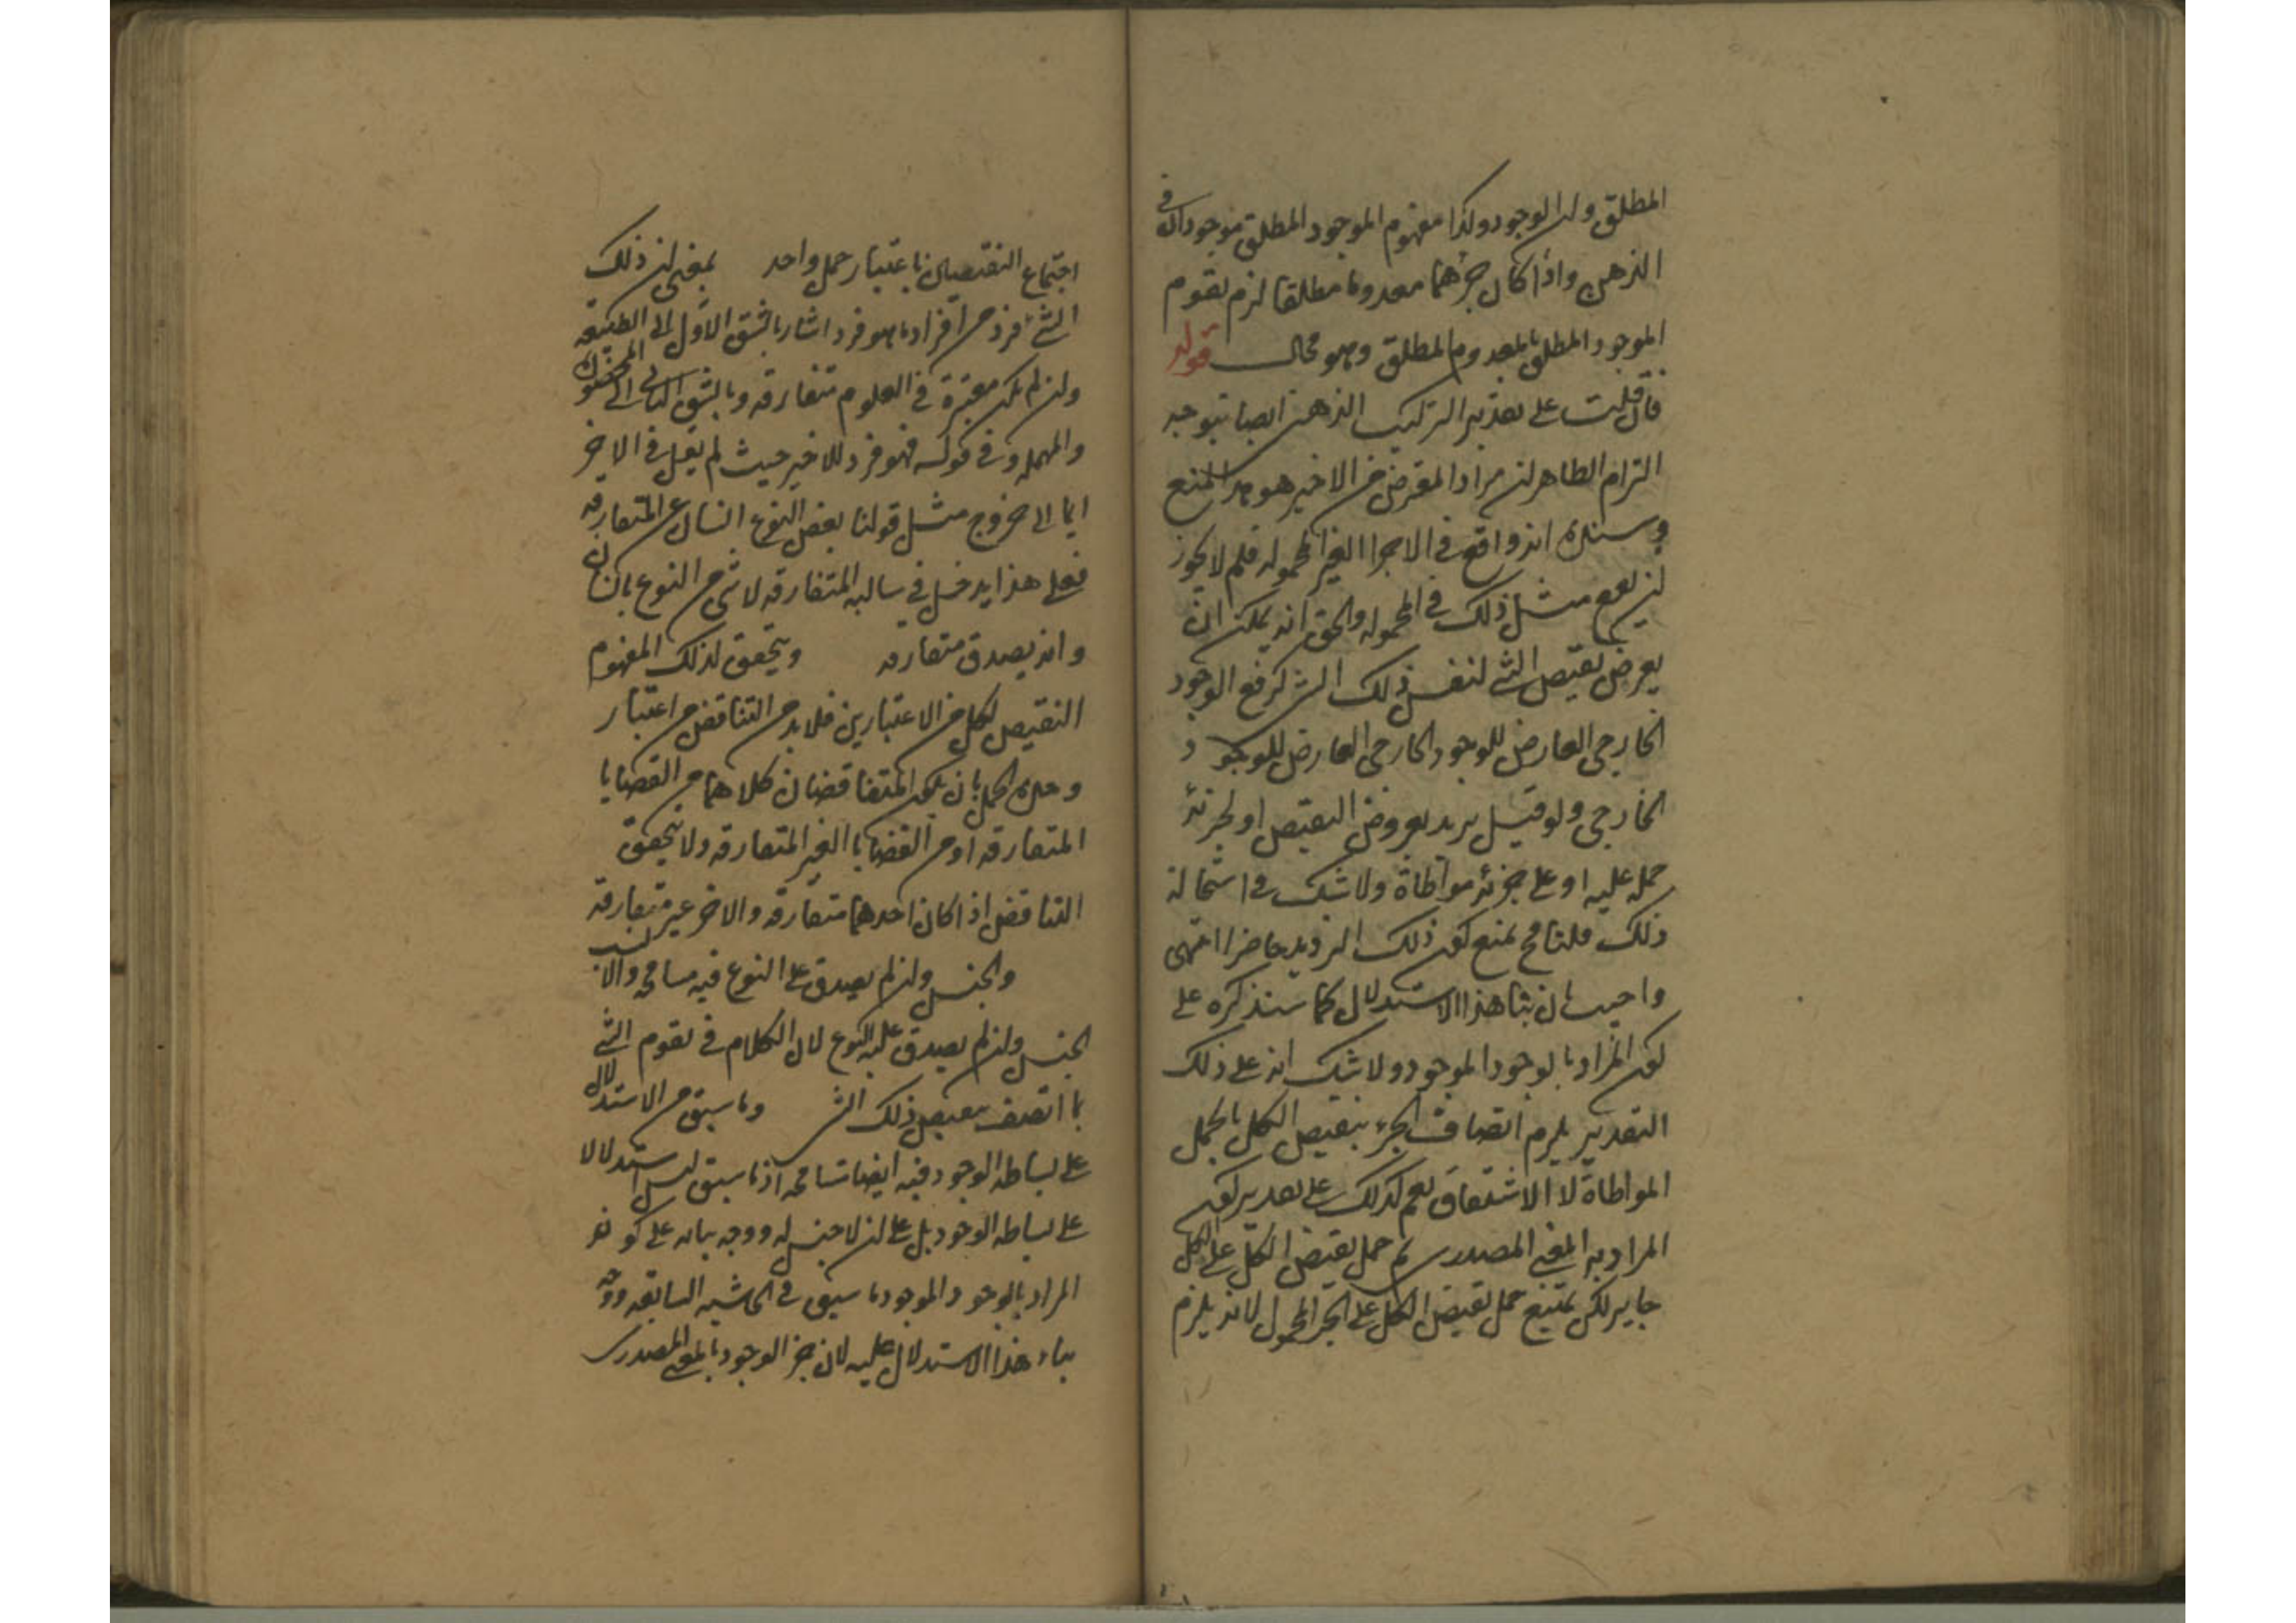 المطلق ولان الوجود وكذا مفهوم الموجود المطلق موجودان في
الذهن واذا كان جزءهما معدوما مطلقا لزم تقوم
الموجود المطلق بالمعدوم المطلق وهو محال قوله
فان قلت على تقدير التركيب الذهني ايضا يتوجه
التزام الظاهر ان مراد المعترض من الاخير هو هذا المنع
وسنده انه واقع في الاجزا الغير المحموله فلم لا يجوز
ان يقع مثل ذلك في المحموله والحق انه يمكن ان
يعرض نقيض الشي لنفس ذلك الشي كرفع الوجود
الخارجي العارض للوجود الخارجي العارض للوجود
الخارجي ولو قيل يريد بعروض النقيض او لجزئه
حمله عليه او على جزئه مواطاة ولا شك في استحالة
ذلك قلنا فح يمنع كون ذلك الترديد حاضرا انتهى
واجيب بان بنا هذا الاستدلال كما سنذكره على
كون المراد بالوجود الموجود ولا شك انه على ذلك
التقدير يلزم اتصاف الجزء بنقيض الكل بالحمل
المواطاة لا الاشتقاق نعم كذلك على تقدير كون
المراد به المعنى المصدري ثم حمل نقيض الكل على الكل
جايز لكن يمتنع حمل نقيض الكل على الجزء المحمول لانه يلزم
اجتماع النقيضين باعتبار حمل واحد بمعنى ان ذلك
الشئ فرد من افراد ما هو فرد اشار بالشق الاول الى الطبيعة
وان لم يكن معتبرة في العلوم متعارفه وبالشق الثاني الى المحصورة
والمهمله وفي قوله فهو فرد للاخير حيث لم يقل في الاخر
ايما الى خروج مثل قولنا بعض النوع انسان عن المتعارفه
فعلى هذا يدخل في سالبه المتعارفه لا شي من النوع بانسان
وانه يصدق متعارفه ويتحقق لذلك المفهوم
النقيض لكل من الاعتبارين فلا بد من التناقض من اعتبار
وحدة الحمل بان يكون المتناقضان كلاهما من القضايا
المتعارفه او من القضايا الغير المتعارفه ولا يتحقق
التناقض اذا كان احدهما متعارفه والاخر غير متعارفه
والجنس وان لم يصدق على النوع فيه مسامحه والانسب
الجنس وان لم يصدق عليه النوع لان الكلام في تقوم الشي
بما اتصف بنقيض ذلك الشي وما سبق من الاستدلال
على بساطه الوجود فيه ايضا تسامحه اذ ما سبق ليس استدلالا
على بساطه الوجود بل على ان لا جنس له ووجه بنائه على كون
المراد بالوجود الموجود ما سبق في الحاشيه السابقه ووجه
بناء هذا الاستدلال عليه لان جزء الوجود بالمعنى المصدري